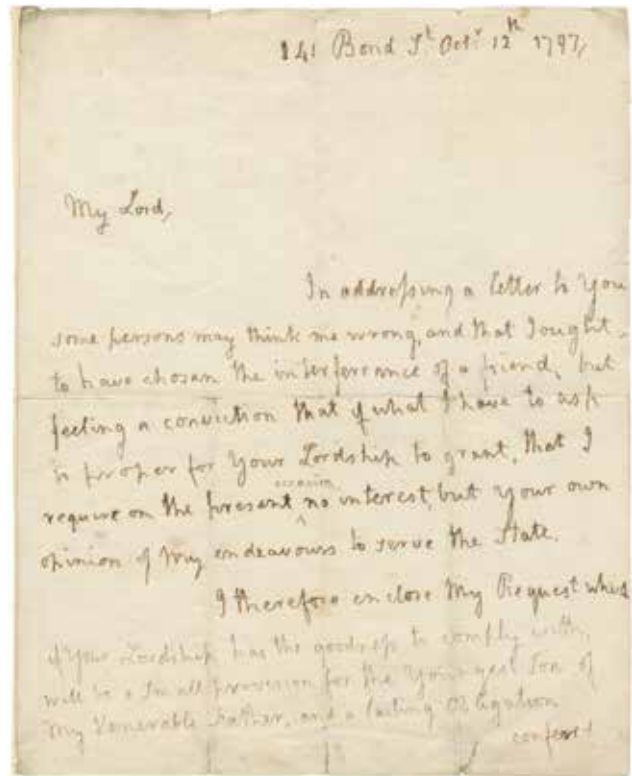 141 Bond St Octr 12th 1797,
My Lord,
In addressing a letter to You
some persons may think me wrong, and that I ought
to have chosan the interferance of a friend, but
feeling a conviction that if what I have to ask
is proper for Your Lordship to grant, that I
occasion
require on the present ^ no interest, but your own
opinion of my endeavours to serve the State.
I therefore enclose My Request which
if Your Lordship has the goodness to comply with,
will be a small provision for the Youngest Son of
My Venerable Father, and a lasting Obligation
confer'd